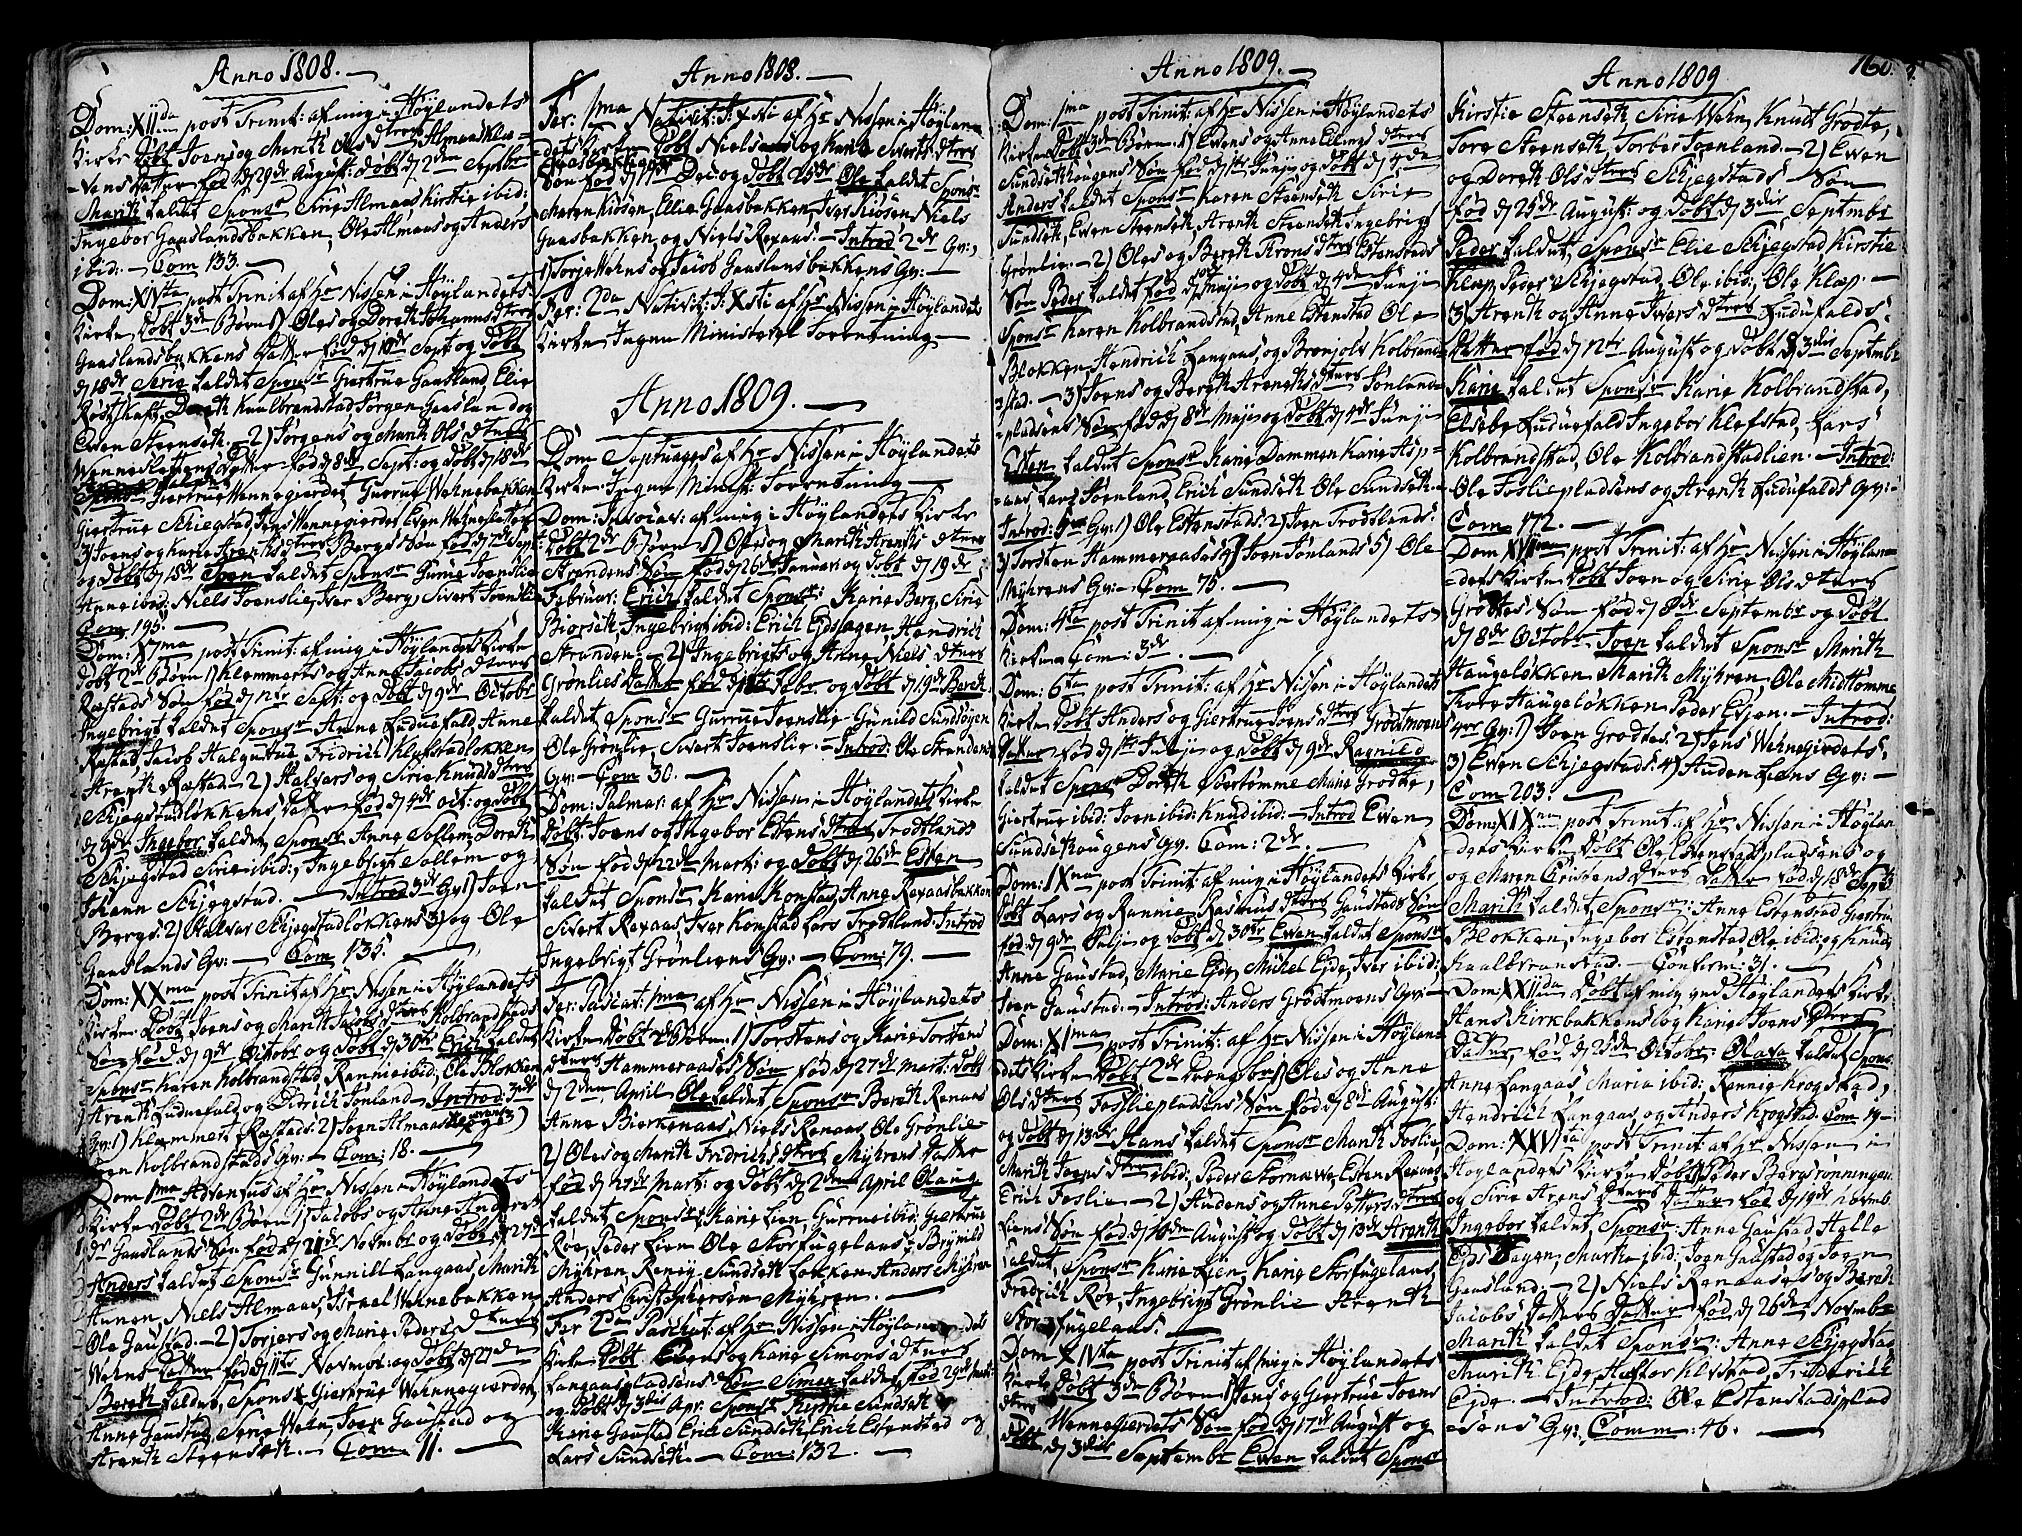 Anno 1808.
Dom: XIIda post Trinit: af mig i Høylandets
Kirke Døbt Joens og Marith Ols dtters Almaaskle-
-vens datter fød d 29de August: døbt d 2den Septbr
Marith kaldet Sponsr Sirie Almaas Kirstie ibid:
Ingebor Gaaslandsbakken, Ole Almaas og Anders
ibid: - Com 133. -
Dom: XIVta post Trinit af Hr Nissen i Høylandets
Kirke døbt 3de Børn 1) Oles og Doreth Johanns dtters
Gaaslandsbakkens datter fød d 10de Sept og døbt
d 18de Sirie kaldet Sponsr Giertrue Gaasland, Elie
Røstskaft, Doreth Kaalbrandstad Jørgen Gaasland og
Ewen Steenseth - 2) Jørgens og Marith Ols dtters
Wenneslettens datter fød d 8de Sept: og døbt d 18de
Sponsr Giertrue Wennegierdet, Gurrue Wehnebakken
Giertrue Schiegstad, Jens Wennegierdet Ewen Wehnesletten
3) Joens og Karie Arenths dtters Bergs Søn fød d 7de Sept:
og døbt d 18de Joen kaldet Sponsr Gurrue Joenslie
Anne ibid: Niels Joenslie, Iver Berg, Sivert Joenslie
Com 195. -
Dom: XVma post Trinit: af Hr Nissen i Høylandets Kirke
døbt 2de Børn 1) Klemmerts og Anne Jacobs dtters
Ræstads Søn fød d 12te Sept: og døbt d 9de Octobr
Ingebrigt kaldet Sponsr Anne Luduefald Anne
Ræstad Jacob Halguttue, Fridrich Klefstadløkken
Arenth Ræstad - 2) Halvers og Sirie Knuds dtters
Schjegstadløkkens datter fød d 4de Oct: og døbt
d 9de Ingebor kaldet Sponsr Anne Sollem, Doreth
Schjegstad Sirie ibid:, Ingebrigt Sollem og
Johann Schjegstad. - Introd 3de Gv: 1) Joen
Bergs: 2) Halvar Schjegstadløkkens 3) og Ole
Gaaslands Gv: - Com 135. -
Dom: XXma post Trinit af Hr Nissen i Høylandets
Kirke Døbt Joens og Marith Jacobs dtters Kolbrandstads
Søn fød d 9de Octobr og døbt d 30te Erich kaldet
Sponsr Karen Kolbrandstad Rannie ibid: Ole Blokken
Arenth Luduefald og Didrich Jønland Introd 3de
Gv: 1) Klemmert Ræstads: 2) Joen Almaas 3)
Joen Kolbrandstads Gv: - Com: 18. -
Dom 1ma Adventus af Hr Nissen i Høylandets
Kirke Døbt 2de Børn 1) Jacobs og Anne Anders
dr Gaaslands Søn fød d 21de Novmbr og døbt d 27de
Anders kaldet Sponsr Gunnild Langaas, Marith
Annen, Niels Almaas, Israel Wehnebakken
Ole Gaustad - 2) Torjers og Marie Peders dtters
Wehns datter fød d 11te Novmbr: og døbt d 27de
Bereth kaldet, Sponsr Giertrue Wehnnegierdet
Anne Gaustad, Serie Wehn, Joen Gaustad og
Arenth Steenseth. - Com 11. -
Anno 1808. -
Fer: 1ma Nativit: J: Xsti af Hr Nissen i Høylan-
dets Kirke Døbt Niels og Karie Siverts dtters
Gaasbakkens
Søn fød d 19de Dec: og døbt 25de Ole kaldet Sponsr
Maren Kiøsen, Ellie Gaasbakken, Iver Kiøsen Niels
Gaasbakken og Niels Rexaas. - Introd 2de Gv:,
1) Torje Wehns og Jacob Gaaslansbakkens Gv: -
Fer: 2da Nativit: J: Xsti af Hr Nissen i Høylandets
Kirke Ingen Ministeriel Forretning -
Anno 1809. -
Dom Septuages af Hr Nissen i Høylandets
Kirke Ingen Minist: Forretning -
Dom: Invocav: af mig i Høylandets Kirke
Døbt 2de Børn 1) Oles og Marith Arenths dtters
Strandens Søn fød d 26de Januari og døbt d 19de
Februar: Erich kaldet Sponsr: Karie Berg, Sirie
Biørseth, Ingebrigt ibid: Erich Eidslagen, Hendrich
Stranden - 2) Ingebrigts og Anne Niels dtters
Grønlies datter fød d Febr og døbt d 19de Bereth
kaldet, Sponsr Gurrue Joenslie Gunild Sundsøyen
Ole Grønlie, Sivert Joenslie. - Introd: Ole Strandens
Gv: - Com 30. -
Dom: Palmar: af Hr Nissen i Høylandets Kirke
døbt: Joens og Ingebor Estens dtters Trødtlands
Søn fød d 22de Marti: og døbt d 26de Esten
kaldet Sponsr Karie Konstad, Anne Rexaasbakken
Sivert Rexaas, Iver Konstad Lars Trødtland: Introd
Ingebrigt Grønliens Gv: - Com: 79. -
Fer: Paschat: 1ma af Hr Nissen i Høylandets
Kirke Døbt 2de Børn: 1) Torstens og Karie Torstens
dtters Hammeraases Søn fød d 27de Mart: døbt
d 2den April Ole kaldet, Sponsr Bereth Renaas
Anne Bierkenaas, Niels Renaas, Ole Grønlie -
2) Oles og Marith Fridrichs dtters Myhrens datter
fød d Mart: og døbt d 2den April Olaug
kaldet, Sponsr, Karie Lien, Gurrue ibid: Giertrue
Roe, Peder Lien Ole Storfugelaas, Brynild
Myhren, Renie Sundseth Løkken Anders Myhren
Anders Christophersen Myhren. -
Fer 2da Paschat: af Hr Nissen i Høylandets
Kirke Døbt Ewens og Karie Simons dtters
Langaaspladsens Søn Simen kaldet, fød 29de Marti
og døbt d 3die Apr. Sponsr Sundseth
Karie Gaustad Erich Sundseth, Erich Estenstad og
Lars Sundseth. - Com: 132. -
Anno 1809. -
Dom: 1ma post Trinit: af Hr Nissen i Høylandets
Kirke Døbt 3de Børn: 1) Ewens og Anne Elings dtters
Sundsethaugens Søn fød d 1ste Junji og døbt d 4de
Anders kaldet Sponsr Karen Steenseth Sirie
Sundseth, Ewen Steenseth, Arenth Steenseth Ingebrigt
Grønlie. - 2) Oles og Bereth Trons dtters Estenstads
Søn Peder kaldet fød d Maji og døbt d 4de Junji
Sponsr Karen Kolbrandstad, Anne Estenstad Ole
Blokken Hendrich Langaas, og Brønjolv Kolbrand-
-stad. - 3) Joens og Bereth Arenths dtters Jønland-
-pladsens Søn fød d 8de Maji og døbt d 4de Junji
Esten kaldet Sponsr Karie Dammen Karie Asp-
-aas, Lars Jøenland, Erich Sundseth Ole Sundseth. -
Introd: 5ma Gv: 1) Ole Estenstads: 2) Joen Trødtlands:
3) Torsten Hammeraases 4) Joen Jønlands 5) Ole
Myhrens Gv: - Com 75. -
Dom: 4ta post Trinit af mig i Høylandets
Kirke Com: 3de. -
Dom: 6ta post Trinit: af Hr Nissen i Høylandets
Kirke Døbt Anders og Giertrue Joens dtters Grødtmoens
datter fød d 1ste Julji og døbt d 9de Ragnild
kaldet Sponsr Doreth Øverhomme Marie Grødte,
Giertrue ibid: Joen ibid: Knud ibid: - Introd Ewen
Sundsethougens Gv. Com: 2de. -
Dom: IXna post Trinit: af mig i Høylandets Kirke
Døbt Lars og Rannie Rasmus dtters Gaustads Søn
fød d 9de Julji og døbt d 30te Ewen kaldet Sponsr
Anne Gaustad, Marie Eide, Michel Eide, Iver ibid:
Joen Gaustad. - Introd: Anders Grødtmoens Gv: -
Dom: XIma post Trinit: af Hr Nissen i Høylan-
dets Kirke Døbt 2de Drengebørn 1) Oles og Anne
Ols dtters Fosliepladsens Søn fød d 8de August:
og døbt d 13de Hans kaldet Sponsr Marith Foslie,
Marith Joens dtter ibid: Peder Stornæwe, Esten Rexaas
Erich Foslie - 2) Audens og Anne Petters dtters
Liens Søn fød d 10de August og døbt d 13de Arenth
kaldet, Sponsr Karie Lien, Karie Storfugelaas,
Fredrich Roe, Ingebrigt Grønlie Arenth
Storfugelaas. -
Dom XIVta post Trinit af mig i Høylandets
Kirke Døbt 3de Børn 1) Jens og Giertrue Joens
dtters
Wennegierdets Søn fød d 17de August og
døbt d 3die Septembr Ewen kaldet Sponsr
Anno 1809
160.
Kirstie Steenseth Sirie Wehn, Knud Grødte,
Tore Steenseth Torber Joenland. - 2) Ewen
og Doreth Ols dtters Schjegstads Søn
fød d 25de August: og døbt d 3die Septembr
Peder kaldet, Sponsr Elie Schjegstad, Kirstie
Klæp, Peder Schjegstad, Ole ibid:, Ole Klæp. -
3) Arenth og Anne Ivers dtters Luduefalds
datter fød d 12te August og døbt d 3die Septembr
Karie kaldet Sponsr Karie Kolbrandstad,
Elsebe Luduefald Ingebor Klefstad, Lars
Kolbrandstad, Ole Kolbrandstadlien. - Introd:
Ole Fosliepladsens og Arenth Luduefalds Gv: -
Com 172. -
Dom XVIIma post Trinit: af Hr Nissen i Høylan-
-dets Kirke Døbt Joen og Sirie Ols dtters
Grødtes Søn fød d 8de Septembr og døbt
d 8de Octobr Joen kaldet Sponsr Marith
Haugeløkken Marith Myhren, Ole Midthomme
Tore Haugeløkken Peder Esjen. - Introd:
4re Gv: 1) Joen Grødtes: 2) Jens Wehnegierdets,
3) Ewen Schjegstads: 4) Auden Liens Gv: -
Com 203. -
Dom: XIXna post Trinit: af Hr Nissen i Høylan-
-dets Kirke Døbt Ole Estenstadspladsens og
og Maren Christens dtters datter fød d 18de Septbr
Marith kaldet, Sponsr: Anne Estenstad Giertrue
Blokken, Ingebor Estenstad Ole ibid: og Knud
Kaalbranstad. - Confirm: 31. -
Dom: XXIIda Døbt af mig ved Høylandets Kirke
Hans Kirkbakkens og Karie Joens dtters
datter fød d 25de Octobr: Olava kaldet Spons:
Anne Langaas, Maria ibid: Rennie Krogstad,
Hendrich Langaas, og Anders Krogstad. Com 19 -
Dom: XXVIta post Trinit: af Hr Nissen i
Høylandets Kirke Døbt 1) Peder Bergsrønningen
og Sirie Arens dtters datter fød d 19de Novmb
Ingebor kaldet Sponsr: Anne Gaustad Helle
Eidslagen, Martha ibid: Joen Gaustad og Joen
Gaasland. - 2) Niels Renaases og Bereth
Jacobs datters datter fød d 26de Novmbr
Marith kaldet Sponsr: Anne Schjegstad
Marith Eide, Haftor Klefstad, Friderich
Eide - Introd: Ole Estenstadsplad
-sens Gv: Comm: 46. -